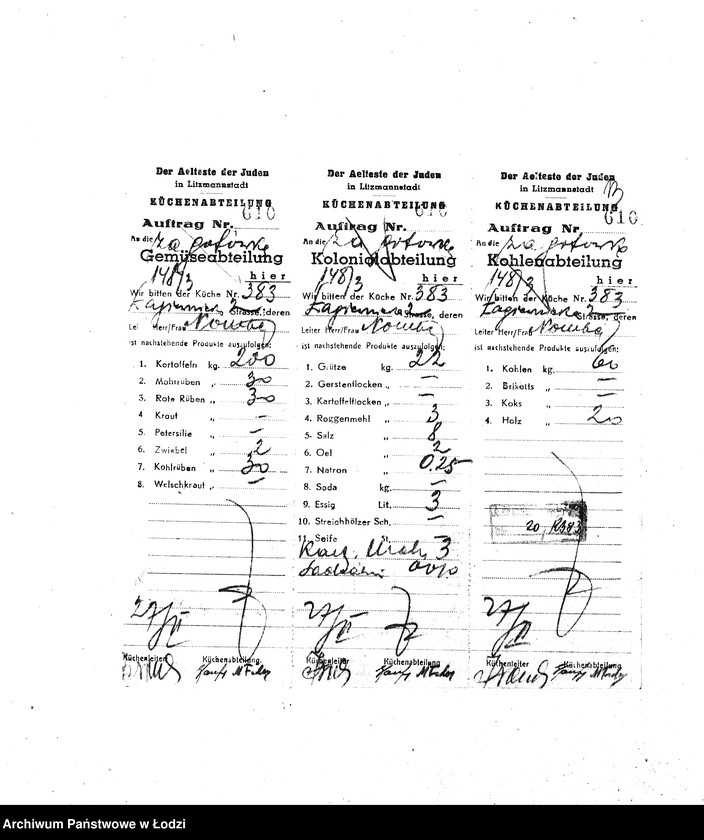 Der Aelteste der Juden
in Litzmannstadt
KÜCHENABTEILUNG
610
Auftrag Nr.
An die za gotówkę
Gemüseabteilung
148/3 hier
Wir bitten der Küche Nr. 383
Strasse, deren
Herr/Frau
ist nachstehende Produkte auszufolgen:
1. Kartoffeln kg. 200
2. Mohrrüben „ 30
3. Rote Rüben „ 30
4 Kraut „ —
5. Petersilie „ —
6. Zwiebel „ 2
7. Kohlrüben „ 30
8. Welschkraut „ —
27/II
Küchenleiter Küchenabteilung
Der Aelteste der Juden
in Litzmannstadt
KÜCHENABTEILUNG
610
Auftrag Nr.
An die za gotówkę
Kolonialabteilung
148/3 hier
Wir bitten der Küche Nr. 383
Strasse, deren
Leiter Herr/Frau
ist nachstehende Produkte auszufolgen:
1. Grütze kg. 22
2. Gerstenflocken „ —
3. Kartoffelflocken „ —
4. Roggenmehl „ 3
5. Salz „ 8
6. Oel „ 2
7. Natron „ 0.25
8. Soda kg. —
9. Essig Lit. 3
10. Streichhölzer Sch. —
11. Seife St. —
3
27/II
Küchenleiter Küchenabteilung
Der Aelteste der Juden
in Litzmannstadt
KÜCHENABTEILUNG
610
Auftrag Nr.
An die za gotówkę
Kohlenabteilung
148/3 hier
Wir bitten der Küche Nr. 383
Strasse, deren
Leiter Herr/Frau
ist nachstehende Produkte auszufolgen:
1. Kohlen kg. 60
2. Briketts „ —
3. Koks „ —
4. Holz „ 20
27/II
Küchenleiter Küchenabteilung
Archiwum Państwowe w Łodzi